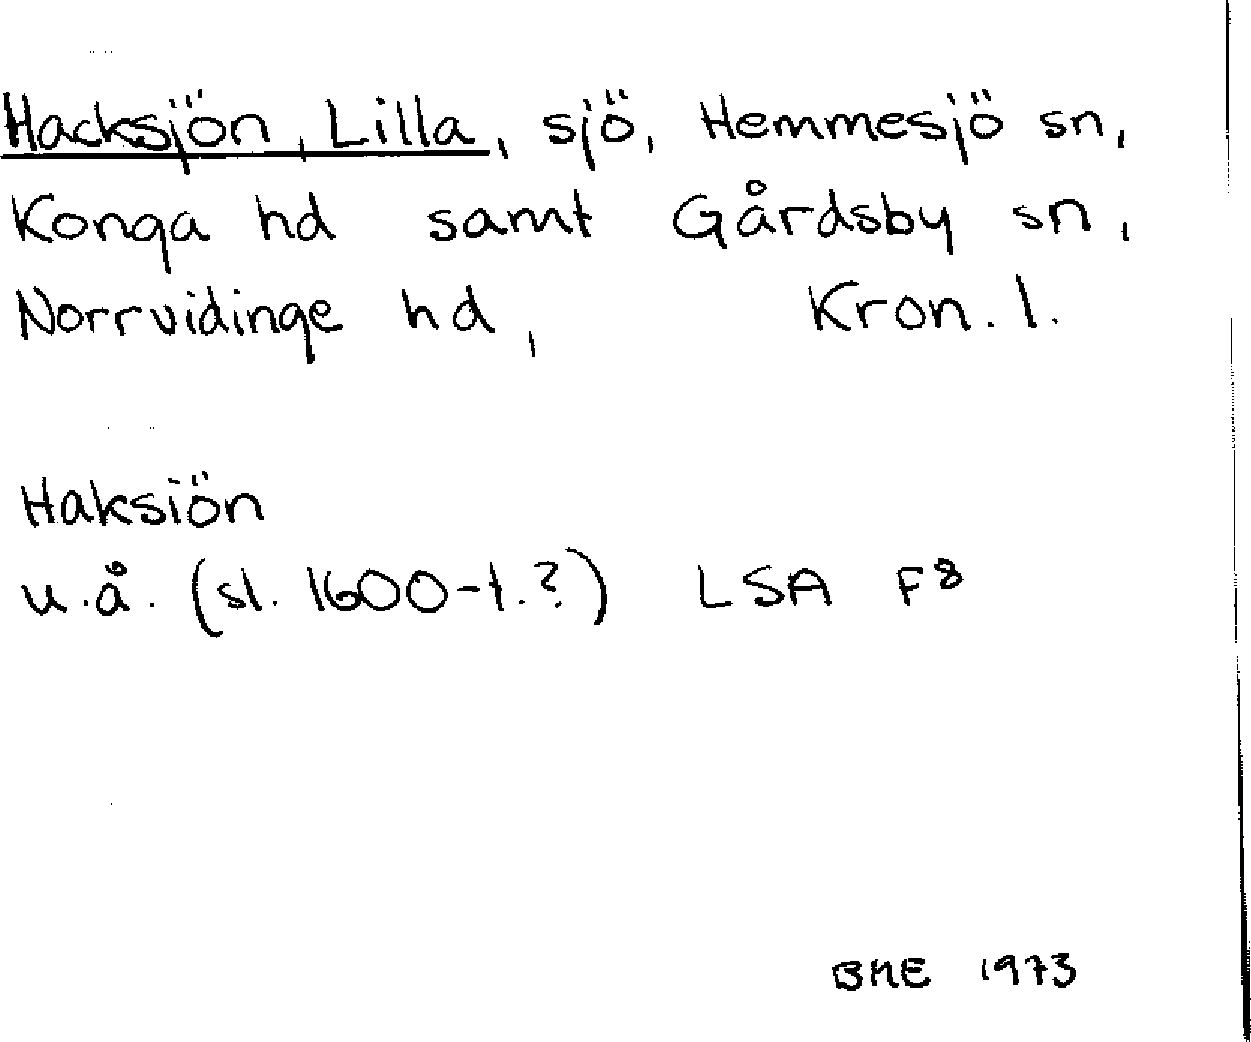 Hacksjön, Lilla, sjö, Hemmesjö sn,
Konga hd samt Gårdsby sn,
Norrvidinge hd, Kron. l.
Haksiön
u.å. (sl. 1600-t.?) LSA F8
BME 1973